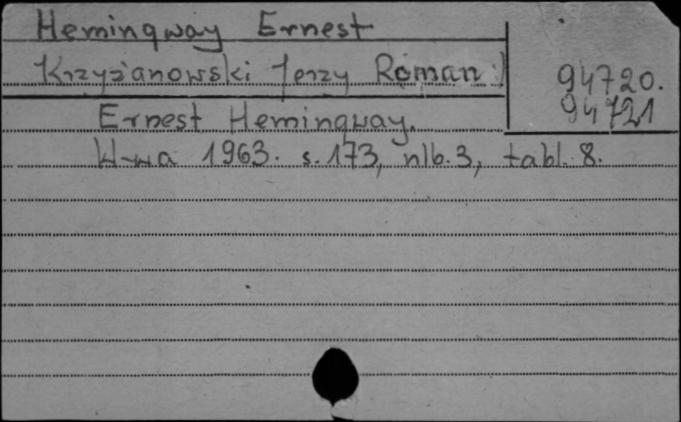 Hemingway Ernest
Krzyżanowski Jerzy Roman:
94720.
94721
Ernest Hemingway.
W-wa 1963. s. 173, nlb. 3, tabl. 8.